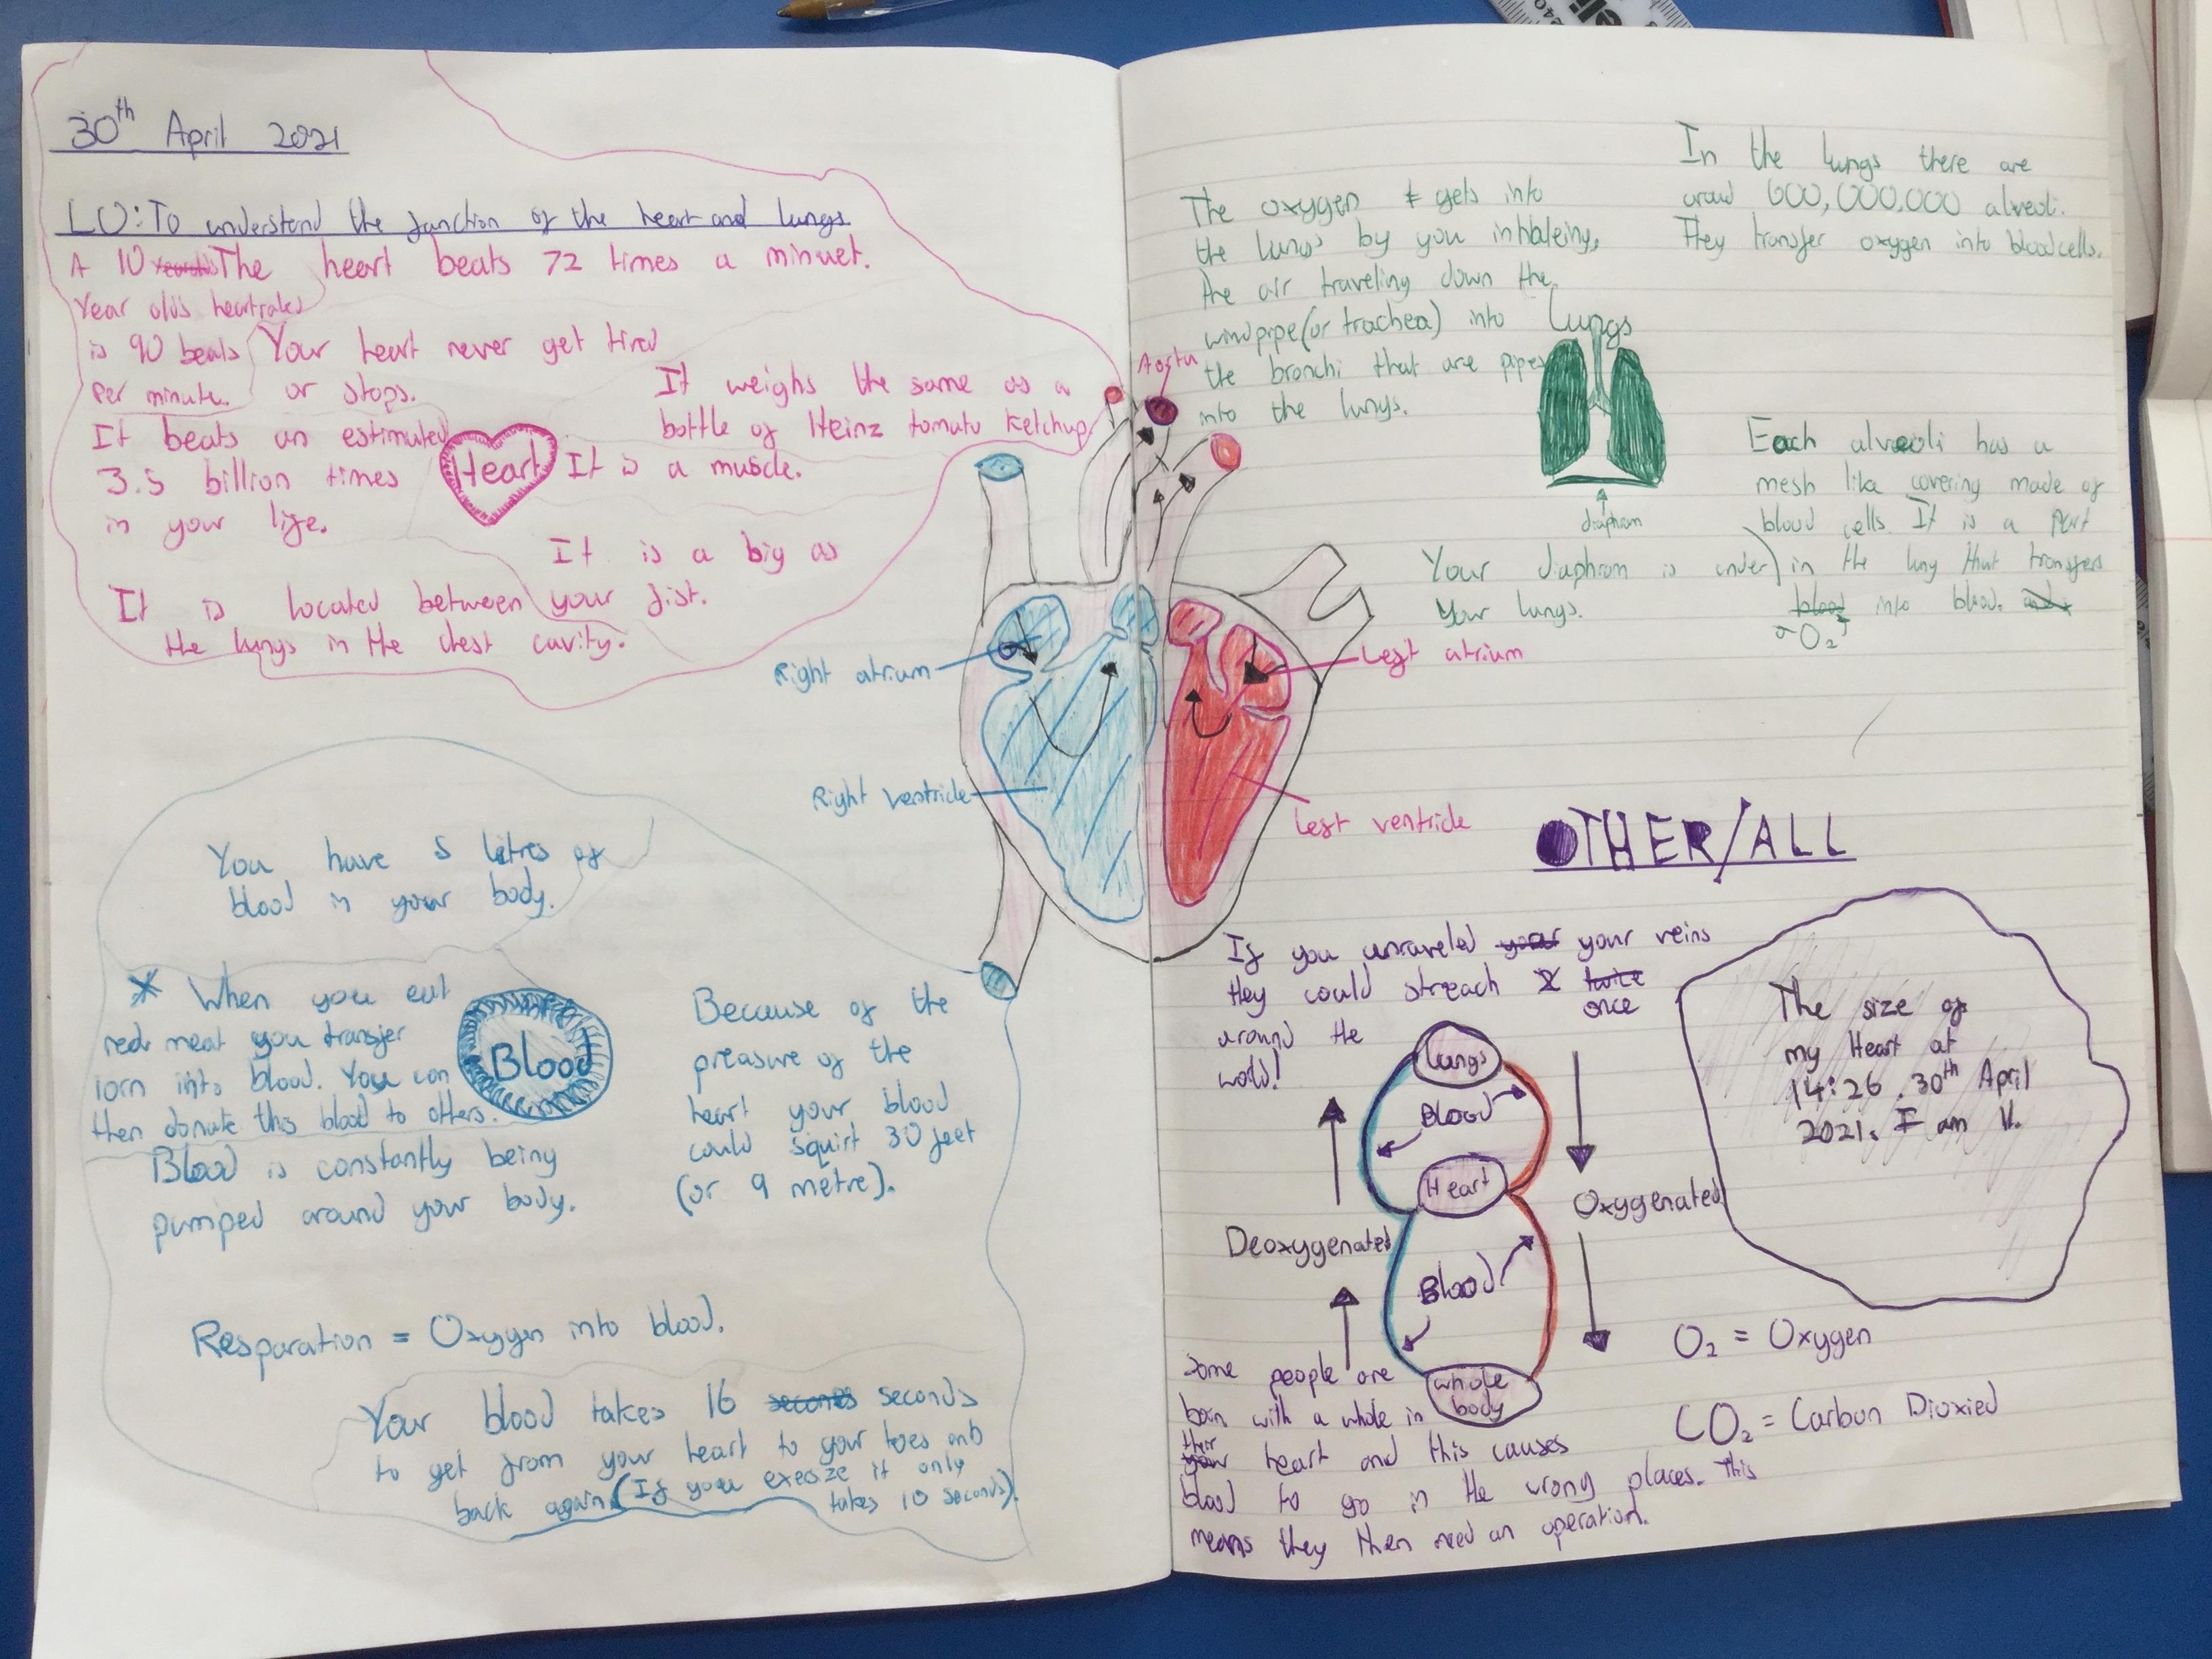 30th April 2021
LO: To understand the function of the heart and lungs.
A 10 The heart beats 72 times a minuet.
Year olds heartrates
is 90 beats
Per minute.
Your heart never get tired
or stops.
It weighs the same as a
bottle of Heinz tomato ketchup
It beats an estimated
3.5 billion times
in your life.
Heart
It is a muscle.
It is a big as
your fist.
It is located between
the lungs in the chest cavity.
Aorta
Right atrium
Right ventricle
Left atrium
Left ventricle
You have 5 litres of
blood in your body.
* When you eat
red meat you transfer
iorn into blood. You can
then donate this blood to others.
Blood
Blood is constantly being
pumped around your body.
Because of the
preasure of the
heart your blood
could squirt 30 feet
(or 9 metre).
Resparation = Oxygen into blood.
Your blood takes 16 seconds seconds
to get from your heart to your toes and
back again. (If you exersize it only
takes 10 seconds).
The oxygen gets into
the lungs by you inhaleing,
the air traveling down the
windpipe (or trachea) into
the bronchi that are pipes
into the lungs.
In the lungs there are
600,000,000 alveoli.
They transfer oxygen into bloodcells.
Lungs
diaphram
Each alveoli has a
mesh like covering made of
blood cells. It is a part
in the lung that transfers
blood into blood.
O2
Your diaphram is under
your lungs.
OTHER/ALL
If you unraveled your your veins
they could streach twice
once
around the
world!
Lungs
Blood
Heart
Blood
whole
body
Deoxygenated
Oxygenated
The size of
my Heart at
14:26. 30th April
2021. I am 11.
O2 = Oxygen
CO2 = Carbon Dioxied
Some people are
born with a whole in
their
your heart and this causes
blood to go in the wrong places. This
means they then need an operation.